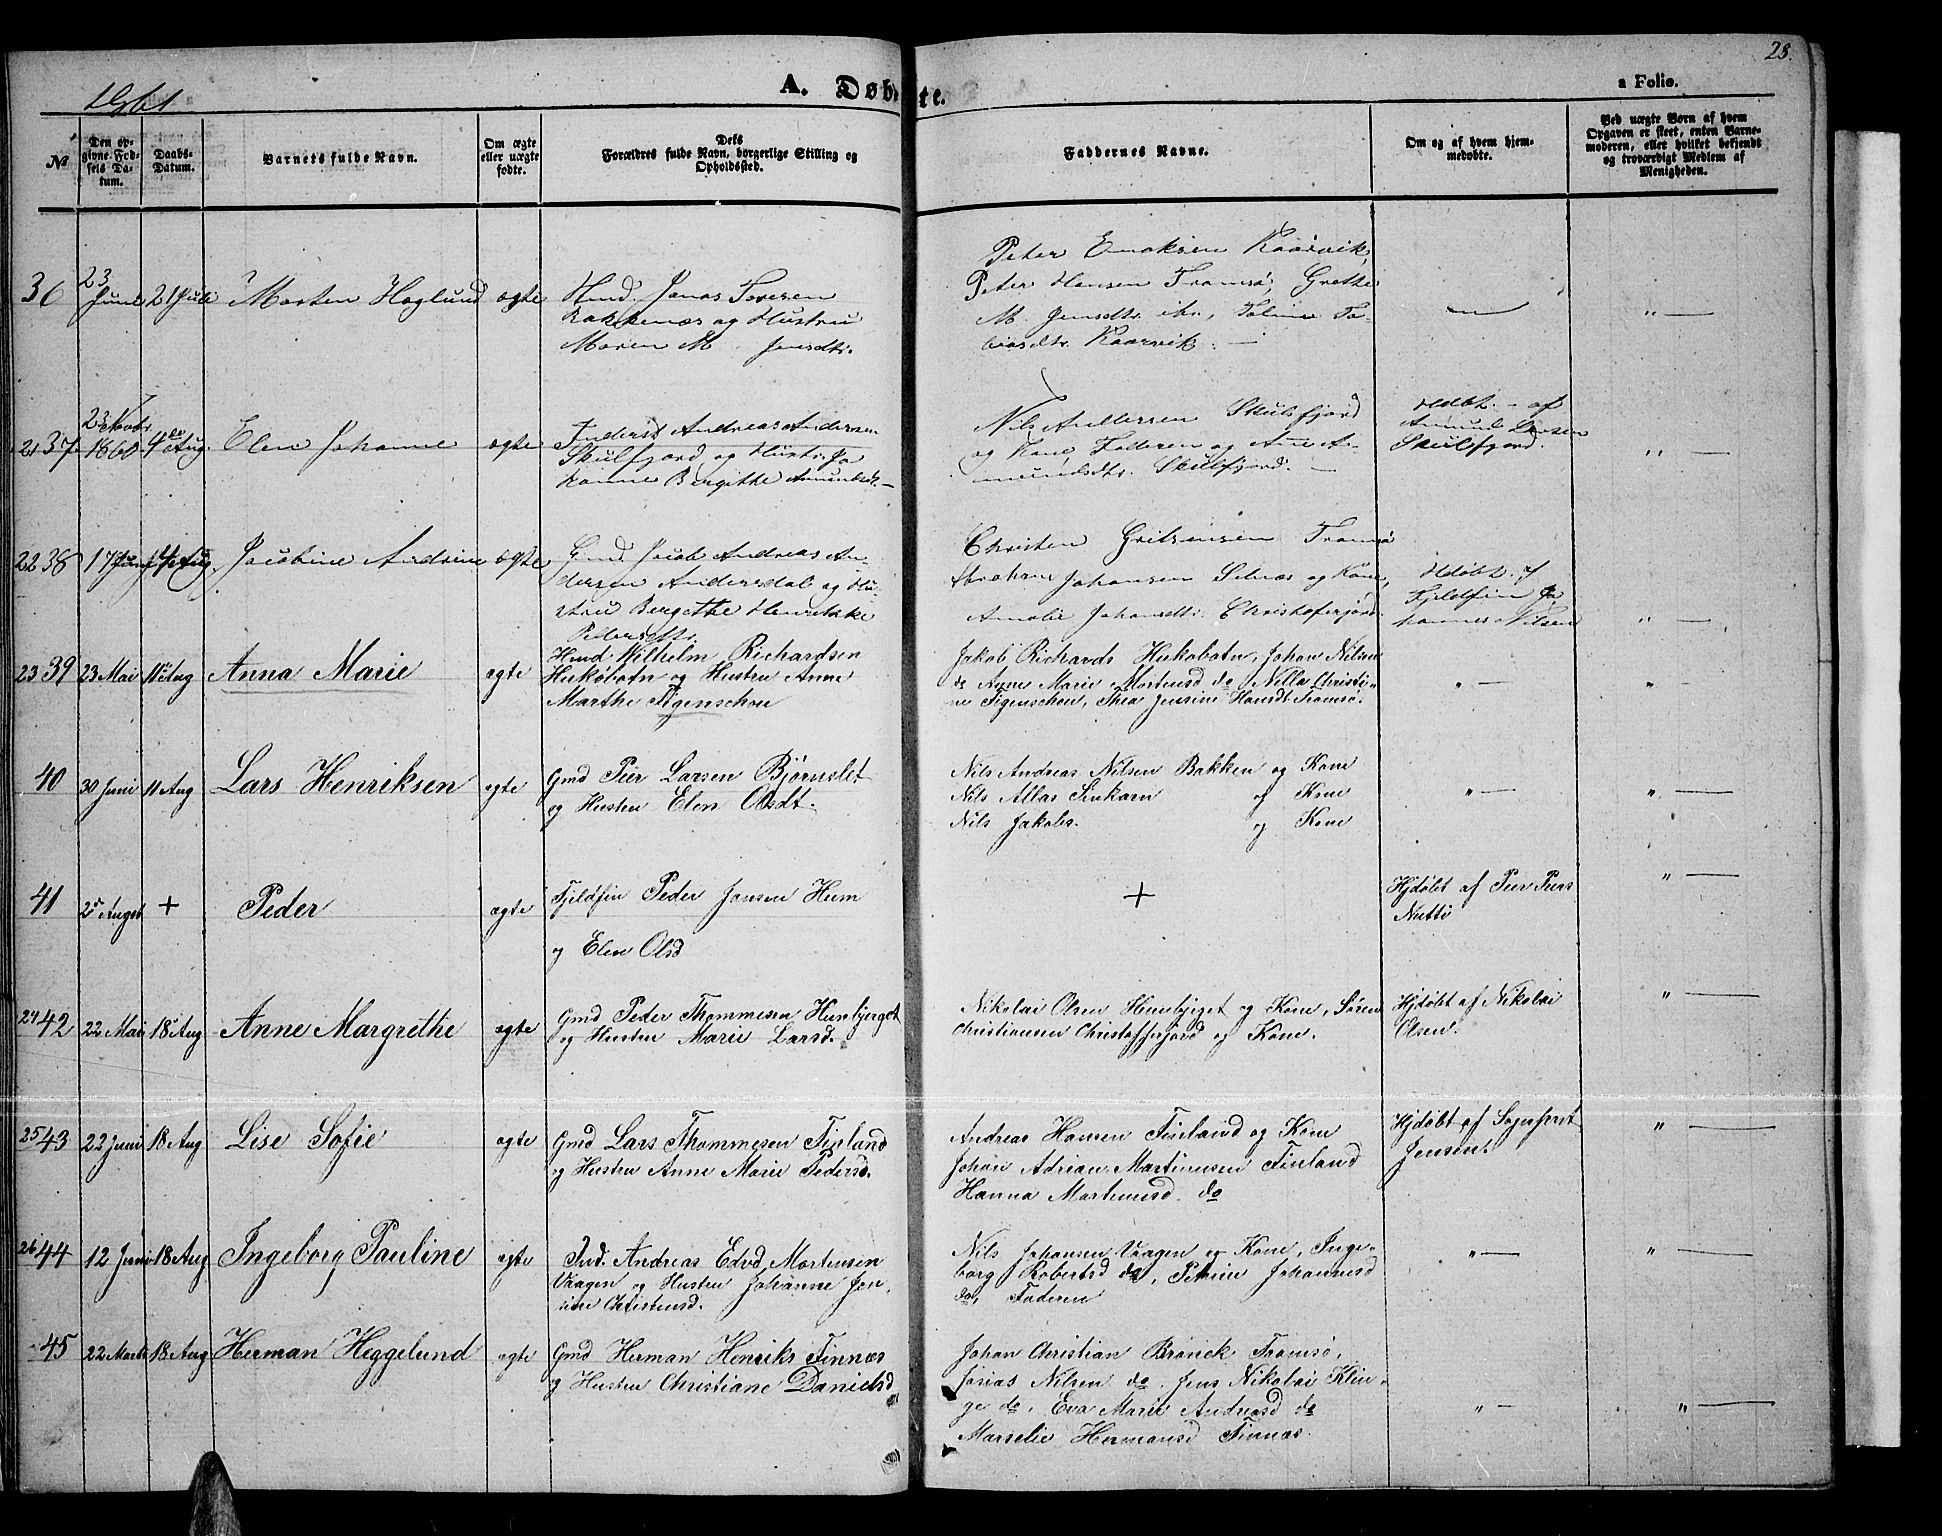 28.
1861
A. Døbte.
a Folio.
No
Den opgivne Fødsels Datum.
Daabs-Datum.
Barnets fulde Navn.
Om ægte eller uægte fødte.
Dets Forældres fulde Navn, borgerlige Stilling og Opholdssted.
Faddernes Navne.
Om og af hvem hjemmedøbte.
Ved uægte Børn af hvem Opgaven er skeet, enten Barnemoderen, eller hvilket bekjendt og troværdigt Medlem af Menigheden.
36 23 Juni 21 Juli Morten Hoglund ægte
Hmd. Jonas
og Hustru
Maren M. Jensdtr.
Peter Enoksen Kaarvik,
Peter Hansen Tromsø, Grethe
M. Jensdtr. ibr., Toline To-
biasdtr. Kaarvik. —
— " —
21 37 23 Novbr. 1860 4de Aug. Elen Johanne ægte
Inderst Andreas Andersen
Skulsfjord og Hustr. Jo
hanne Bergitte Amundsdr. —
Nils Andersen Skulsfjord
og Kone, Faderen og Ane A-
mundsdtr. Skulsfjord. —
Hdbt. — af
Amund Larsen
Skulsfjord.
" —
22 38 17 Juni 4 Aug. Jacobine Andrine ægte
Gmd. Jacob Andreas An-
dersen Andersdal og Hu-
stru Bergethe Henrikke
Pedersdtr.
Christen Tromsø
Abraham Johansen Selnæs og Kone,
Amalie Johansdtr. Christoferfjord.
Hdøbt. af
Fjeldfin Jo
hannes Nilsen
" —
23 39 23 Mai 11te Aug Anna Marie ægte
Hmd. Wilhelm Richardsen
Hiskobotn og Hustru Anne
Marthe Figenschou
Jakob Richards Hiskobotn, Johan Nilsen
do Anne Marie Mortensd do, Nilla Christi-
ne Figenschou, Thea Jensine Hansdt Tromsø.
" — " —
40 30 Juni 11 Aug Lars Henriksen ægte
Gmd Peer Larsen Bjørnslet
og Hustru Elen Olsdt.
Nils Andreas Nilsen Bakken og Kone
Nils Allas Sinkarn og Kone
Nils Jakobs. og Kone
" — " —
41 25 August + Peder ægte
Fjeldfin Peder Jonsen Hum
og Elen Olsd
+
Hjdøbt af Peer Peers
Nutti
" —
24 42 22 Mai 18 Aug Anne Margrethe ægte
Gmd Peder Thommesen Hunbjerget
og Hustru Marie Larsd.
Nikolai Olsen Hunbjerget og Kone, Sören
Christiansen Christofferfjord og Kone.
Hjdøbt af Nikolai
Olsen.
" —
25 43 22 Juni 18 Aug Lise Sofie ægte
Gmd Lars Thommesen Finland
og Hustru Anne Marie Pedersd.
Andreas Hansen Finland og Kone
Johan Adrian Martinusen Finland
Hanna Martinusd. do
Hjdøbt af Sognepræst
Jensen.
" —
26 44 12 Juni 18 Aug Ingeborg Pauline ægte
Ind. Andreas Edvd. Mortensen
Vaagen og Hustru Johanne Jen-
sine Christensd.
Nils Johansen Vaagen og Kone, Inge-
borg Robertsd do, Petrine Johannesd
do, Faderen
" — " —
45 22 Marts 18 Aug Herman Heggelund ægte
Gmd Herman Henriks Finnæs
og Hustru Christiane Danielsd
Johan Christian Brönick Tromsø,
Josias Nilsen do, Jens Nikolai Klin-
ge do, Eva Marie Andreasd do
Marselie Hermansd Finnæs.
" — " —